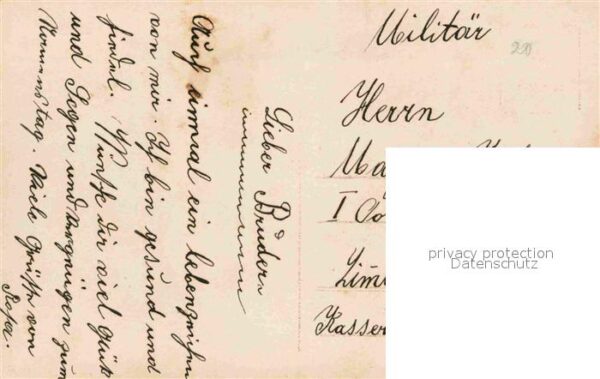 Militär
Herrn
Ma
I
Lim
Kasser
privacy protection
Datenschutz
Lieber Bruder.
Auf einmal ein lebenzeichen
von mir. Ich bin gesund und
Wünsche dir viel Glück
und Segen und Vergnügen zum
Namenstag. Viele Grüsse von
Rosa.